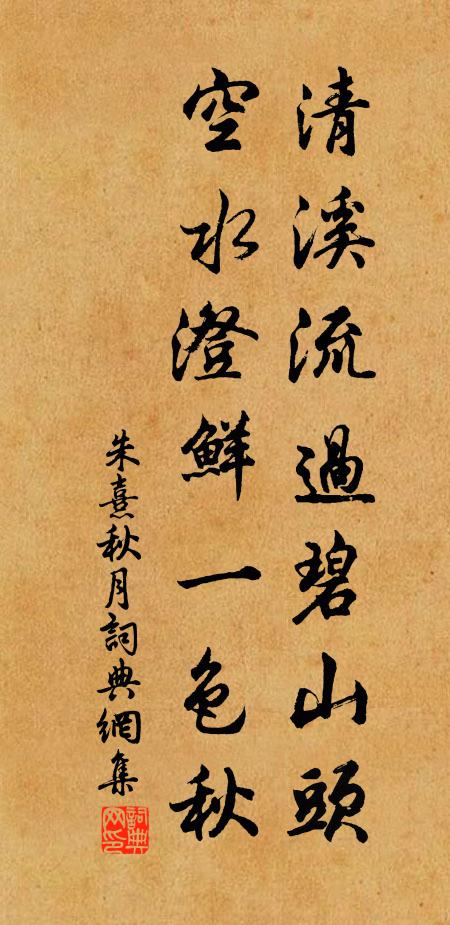 清溪流過碧山頭
空水澄鮮一色秋
朱熹秋月詞典網集
詞典網印